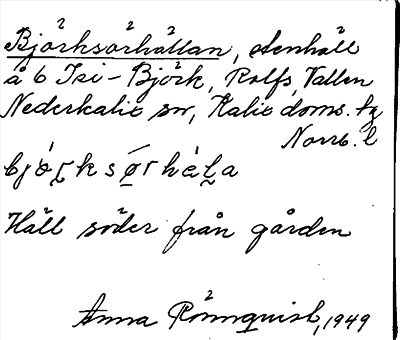 Björksörhällan, stenhäll
å 6 Isi-Björk, Rolfs, Vallen
Nederkalix sn, Kalix doms. tg
Norrb. l
Häll söder från gården
Anna Rönnquist, 1949